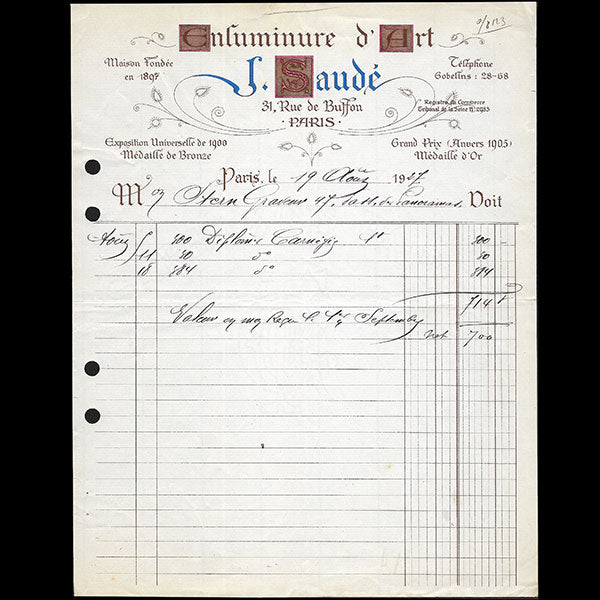 Enluminure d'Art
Maison Fondée
en 1897
J. Saudé
Téléphone
Gobelins : 28-68
31, Rue de Buffon
· PARIS ·
Registre du Commerce
Tribunal de la Seine
Exposition Universelle de 1900
Médaille de Bronze
Grand Prix (Anvers 1905)
Médaille d'Or
Paris, le 19 Août 1927
M Stern Graveur 47, Pass. des Panoramas, Doit
Août 5 300 Diplôme Carnegie 1f 300 -
11 30 d° 30
18 384 d° 384
714 f
Valeur Septembre
net 700